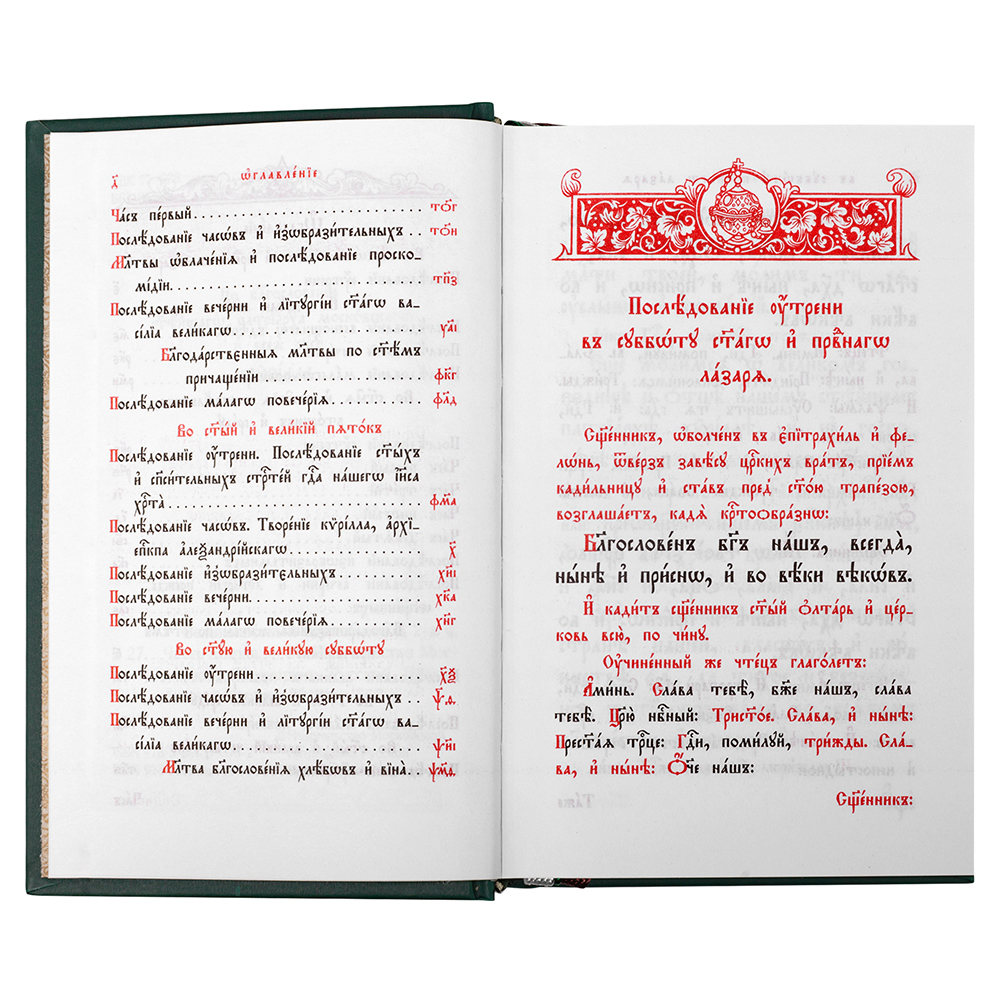 д҃
ѡ҆главле́нїе
Ча́съ пе́рвый . . . . . . . . . . . . . . . . . . . . то҃г
Послѣ́дованїе часѡ́въ и҆ и҆з̾ѡбрази́тельныхъ . . то҃и
Мл҃твы ѡ҆блаче́нїѧ и҆ послѣ́дованїе проско-
мі́дїи . . . . . . . . . . . . . . . . . . . . тп҃з
Послѣ́дованїе вече́рни и҆ лїтꙋргі́и ст҃а́гѡ ва-
сі́лїа вели́кагѡ . . . . . . . . . . . . . . . . . . уа҃і
Бл҃года́рственныѧ мл҃твы по ст҃ѣ́мъ
причаще́нїи . . . . . . . . . . . . . . . . . . фк҃г
Послѣ́дованїе ма́лагѡ повече́рїѧ . . . . . . . . . фл҃д
Во ст҃ы́й и҆ вели́кїй пѧто́къ
Послѣ́дованїе ᲂу҆́трени. Послѣ́дованїе ст҃ы́хъ
и҆ сп҃си́тельныхъ стрⷭ҇те́й гдⷭ҇а на́шегѡ і҆и҃са
хрⷭ҇та̀ . . . . . . . . . . . . . . . . . . . . фм҃а
Послѣ́дованїе часѡ́въ. Творе́нїе кѷрі́лла, а҆рхї-
епⷭ҇кпа а҆леѯандрі́йскагѡ . . . . . . . . . . . . х҃
Послѣ́дованїе и҆з̾ѡбрази́тельныхъ . . . . . . . . хи҃і
Послѣ́дованїе вече́рни . . . . . . . . . . . . . . хк҃а
Послѣ́дованїе ма́лагѡ повече́рїѧ . . . . . . . . . хн҃г
Во ст҃ꙋ́ю и҆ вели́кꙋю сꙋббѡ́тꙋ
Послѣ́дованїе ᲂу҆́трени . . . . . . . . . . . . . . х҃ѯ
Послѣ́дованїе часѡ́въ и҆ и҆з̾ѡбрази́тельныхъ . . . ѱ҃ѳ
Послѣ́дованїе вече́рни и҆ лїтꙋргі́и ст҃а́гѡ ва-
сі́лїа вели́кагѡ . . . . . . . . . . . . . . . . . . ѱи҃і
Мл҃тва бл҃гослове́нїѧ хлѣ́бѡвъ и҆ вїна̀ . . . ѱм҃ѳ
Послѣ́дованїе ᲂу҆́трени
въ сꙋббѡ́тꙋ ст҃а́гѡ и҆ првⷣнагѡ
ла́зарѧ.
Сщ҃е́нникъ, ѡ҆болче́нъ въ є҆пїтрахи́ль и҆ фе-
лѡ́нь, ѿве́рзъ завѣ́сꙋ црⷭ҇кихъ вра́тъ, прїе́мъ
кади́льницꙋ и҆ ста́въ пред̾ ст҃о́ю трапе́зою,
возглаша́етъ, кадѧ̀ крⷭ҇тоѡбра́знѡ:
Бл҃гослове́нъ бг҃ъ на́шъ, всегда̀,
ны́нѣ и҆ при́снѡ, и҆ во вѣ́ки вѣкѡ́въ.
И҆ кади́тъ сщ҃е́нникъ ст҃ы́й ѻ҆лта́рь и҆ це́р-
ковь всю̀, по чи́нꙋ.
Оу҆чине́нный же чте́цъ глаго́летъ:
А҆ми́нь. Сла́ва тебѣ̀, бж҃е на́шъ, сла́ва
тебѣ̀. Цр҃ю̀ нбⷭ҇ный: Трист҃о́е. Сла́ва, и҆ ны́нѣ:
Прест҃а́ѧ трⷪ҇це: Гдⷭ҇и, поми́лꙋй, три́жды. Сла́-
ва, и҆ ны́нѣ: Ѻ҆́ч҃е на́шъ:
Сщ҃е́нникъ: